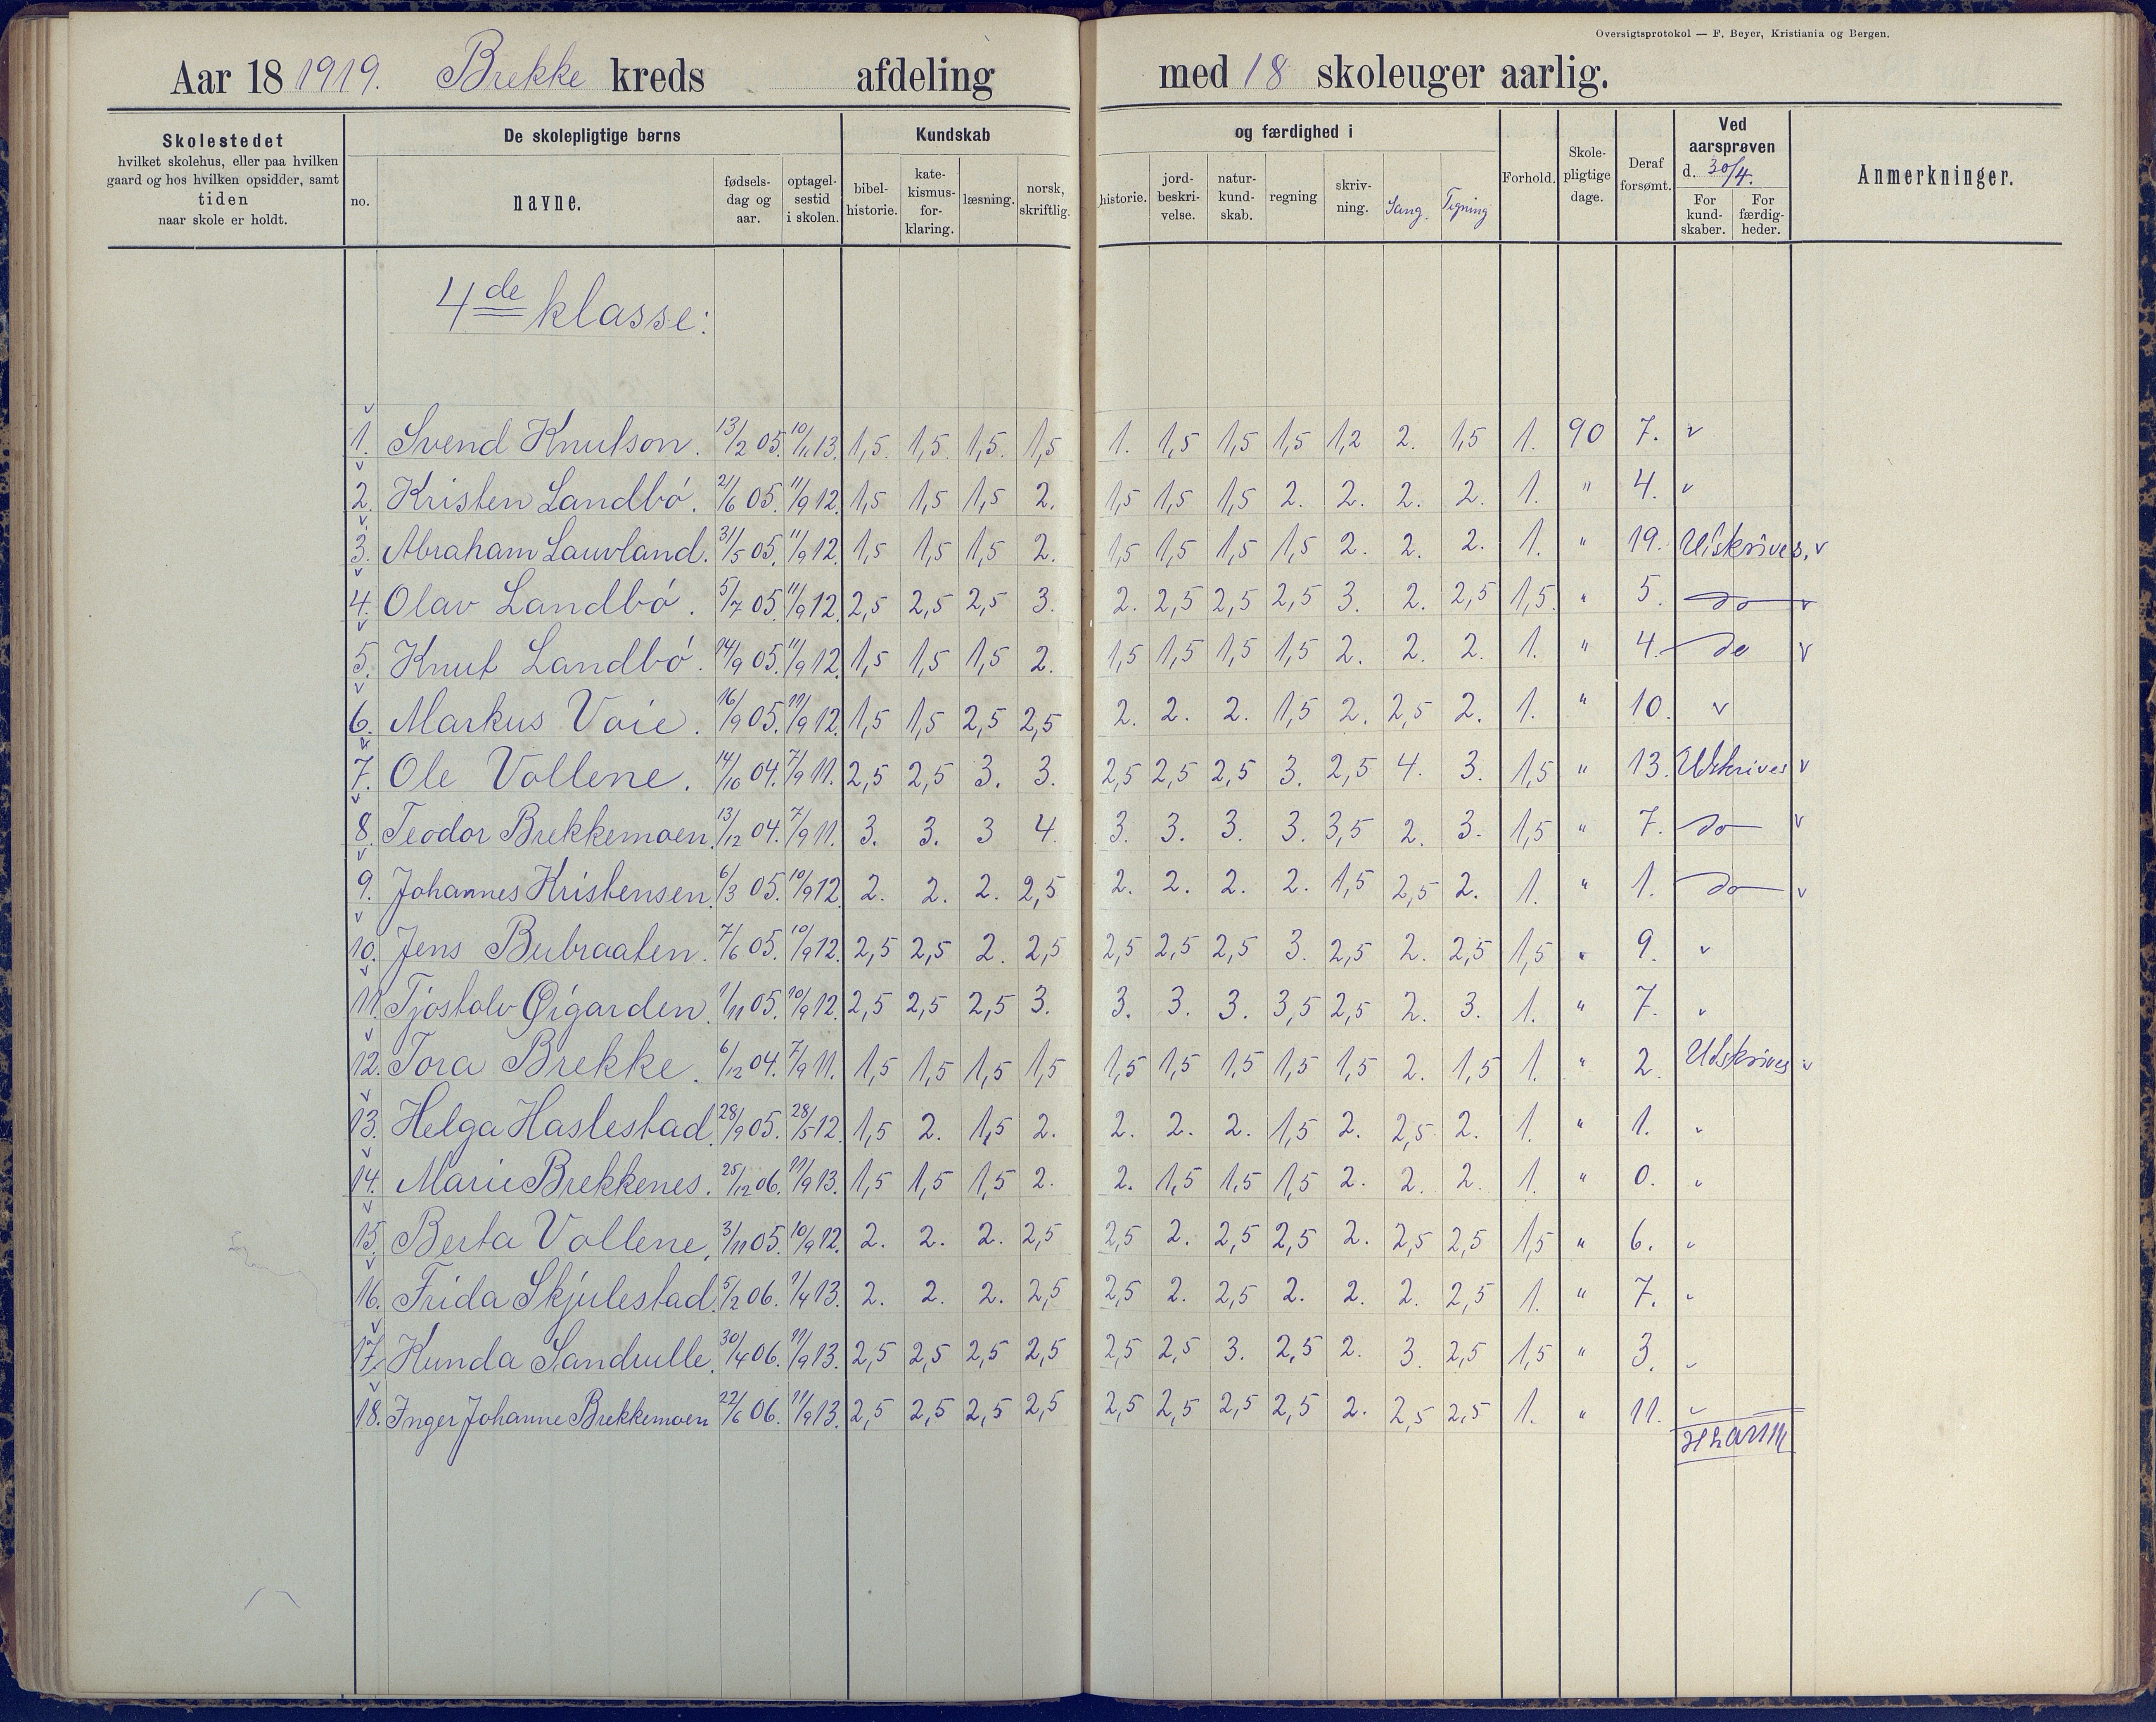 Oversigtsprotokol — F. Beyer, Kristiania og Bergen.
Aar 18 1919. Brekke kreds afdeling med 18 skoleuger aarlig.
Skolestedet
hvilket skolehus, eller paa hvilken
gaard og hos hvilken opsidder, samt
tiden
naar skole er holdt.
De skolepligtige børns
no.
navne.
fødsels-
dag og
aar.
optagel-
sestid
i skolen.
Kundskab
bibel-
historie.
kate-
kismus-
for-
klaring.
læsning.
norsk,
skriftlig.
og færdighed i
historie.
jord-
beskri-
velse.
natur-
kund-
skab.
regning
skriv-
ning.
Sang.
Tegning
Forhold.
Skole-
pligtige
dage.
Deraf
forsømt.
Ved
aarsprøven
d. 30/4.
For
kund-
skaber.
For
færdig-
heder.
Anmerkninger.
4de klasse:
1. Svend Knutson. 13/2 05. 10/11 13. 1,5. 1,5. 1,5. 1,5 1. 1,5 1,5 1,5 1,2 2. 1,5 1. 90 7. v
2. Kristen Landbö. 21/6 05. 11/9 12. 1,5 1,5 1,5 2. 1,5 1,5 1,5 2. 2. 2. 2. 1. " 4. v
3. Abraham Lauvland. 31/5 05. 11/9 12. 1,5 1,5 1,5 2. 1,5 1,5 1,5 1,5 2. 2. 2. 1. " 19. Utskrives, v
4. Olav Landbö. 5/7 05. 11/9 12. 2,5 2,5 2,5 3. 2. 2,5 2,5 2,5 3. 2. 2,5 1,5. " 5. do v
5. Knut Landbö. 14/9 05. 11/9 12. 1,5 1,5 1,5 2. 1,5 1,5 1,5 1,5 2. 2. 2. 1. " 4. do v
6. Markus Voie. 16/9 05. 11/9 12. 1,5 1,5 2,5 2,5 2. 2. 2. 1,5 2. 2,5 2. 1. " 10. v
7. Ole Vollene. 14/10 04. 7/9 11. 2,5 2,5 3. 3. 2,5 2,5 2,5 3. 2,5 4. 3. 1,5 " 13. Utskrives v
8. Teodor Brekkemoen. 13/12 04. 7/9 11. 3. 3. 3 4. 3. 3. 3. 3. 3,5 2. 3. 1,5 " 7. do v
9. Johannes Kristensen. 6/3 05. 10/9 12. 2. 2. 2. 2,5 2. 2. 2. 2. 1,5 2,5 2. 1. " 1. do v
10. Jens Bubraaten. 7/6 05. 10/9 12. 2,5 2,5 2. 2,5 2,5 2,5 2,5 3. 2,5 2. 2,5 1,5 " 9. v
11. Tjostolv Øigarden. 1/11 05. 10/9 12. 2,5 2,5 2,5 3. 3. 3. 3. 3,5 2,5 2. 3. 1. " 7. v
12. Tora Brekke. 6/12 04. 7/9 11. 1,5 1,5 1,5 1,5 1,5 1,5 1,5 1,5 1,5 2. 1,5 1. " 2. Udskrives v
13. Helga Haslestad. 28/9 05. 28/5 12. 1,5 2. 1,5 2. 2. 2. 2. 1,5 2. 2,5 2. 1. " 1. v
14. Marie Brekkenes. 25/12 06. 11/9 13. 1,5 1,5 1,5 2. 2. 1,5 1,5 1,5 2. 2. 2. 1. " 0. v
15. Berta Vollene. 3/11 05. 10/9 12. 2. 2. 2. 2,5 2,5 2. 2,5 2,5 2. 2,5 2,5 1,5 " 6. v
16. Frida Skjulestad. 5/2 06. 1/4 13. 2. 2. 2. 2,5 2,5 2. 2,5 2. 2. 2. 2,5 1. " 7. v
17. Kunda Sandvolle. 30/4 06. 11/9 13. 2,5 2,5 2,5 2,5 2,5 2,5 3. 2,5 2. 3. 2,5 1,5 " 3. v
18. Inger Johanne Brekkemoen 22/6 06. 11/9 13. 2,5 2,5 2,5 2,5 2,5 2,5 2,5 2,5 2. 2,5 2,5 1. " 11. v